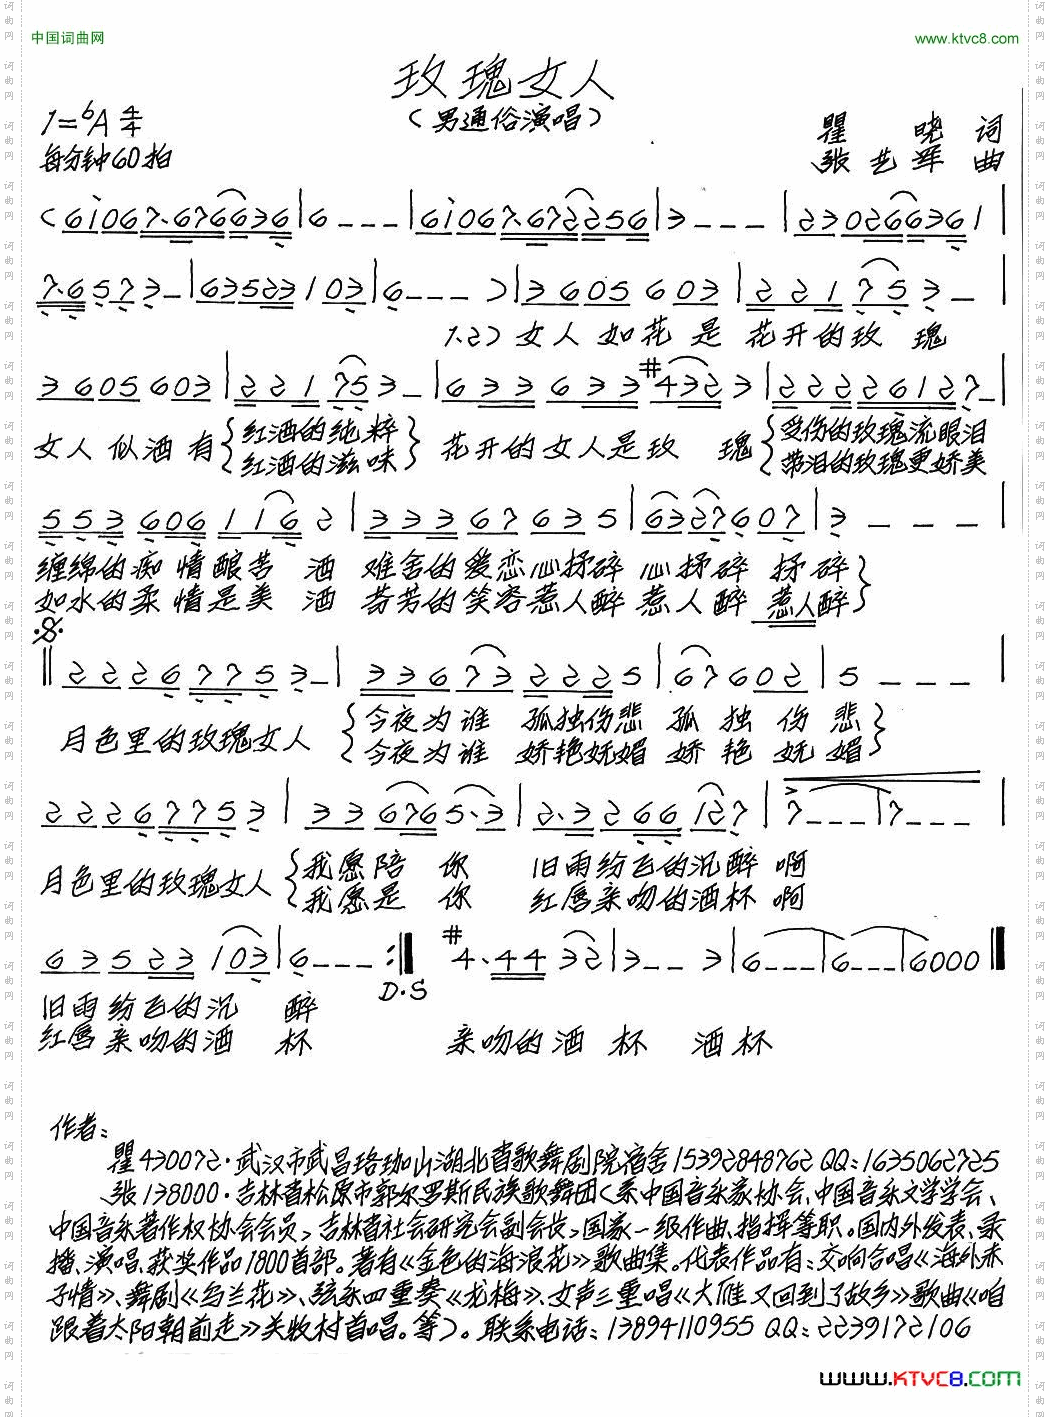 中国词曲网 www.ktvc8.com
玫瑰女人
(男通俗演唱)
1=bA 4/4
瞿 晓 词
每分钟60拍
张艺军 曲
(6i067·676636|6---|6i067·672256|3---|230266361|
7·6573-|63523103|6---)|3605603|221753-|
1.2)女人如花是花开的玫瑰
3605603|221753-|633633#4323|22226127-|
女人似酒有{红酒的纯粹}花开的女人是玫瑰{受伤的玫瑰流眼泪
{红酒的滋味}{带泪的玫瑰更娇美
5536061162|33367635|6327607|3---
缠绵的痴情酿苦酒 难舍的爱恋心抒碎 心抒碎 抒碎}
如水的柔情是美酒 芬芳的笑容惹人醉 惹人醉 惹人醉}
𝄋
||22267753-|336732225|677602|5---|
月色里的玫瑰女人{今夜为谁 孤独伤悲 孤独伤悲}
{今夜为谁 娇艳妩媚 娇艳妩媚}
22267753|336765·3|2·3266127|7---|7---|
月色里的玫瑰女人{我愿陪你 旧雨纷飞的沉醉 啊
{我愿是你 红唇亲吻的酒杯 啊
63523103|6---:|| #4·4432|3--3|6---|6---|6000||
D·S
旧雨纷飞的沉醉
红唇亲吻的酒杯 亲吻的酒杯 酒杯
作者:
瞿430072·武汉市武昌珞珈山湖北省歌舞剧院宿舍15392848762 QQ:1635062725
张138000·吉林省松原市郭尔罗斯民族歌舞团(系中国音乐家协会、中国音乐文学学会、
中国音乐著作权协会会员,吉林省社会研究会副会长,国家一级作曲、指挥等职。国内外发表、录
播、演唱、获奖作品1800首部。著有《金色的海浪花》歌曲集。代表作品有:交响合唱《海外赤
子情》、舞剧《乌兰花》、弦乐四重奏《龙梅》、女声三重唱《大雁又回到了故乡》歌曲《咱
跟着太阳朝前走》关牧村首唱。等)。联系电话:13894110955 QQ:2239172106
www.KTVC8.com